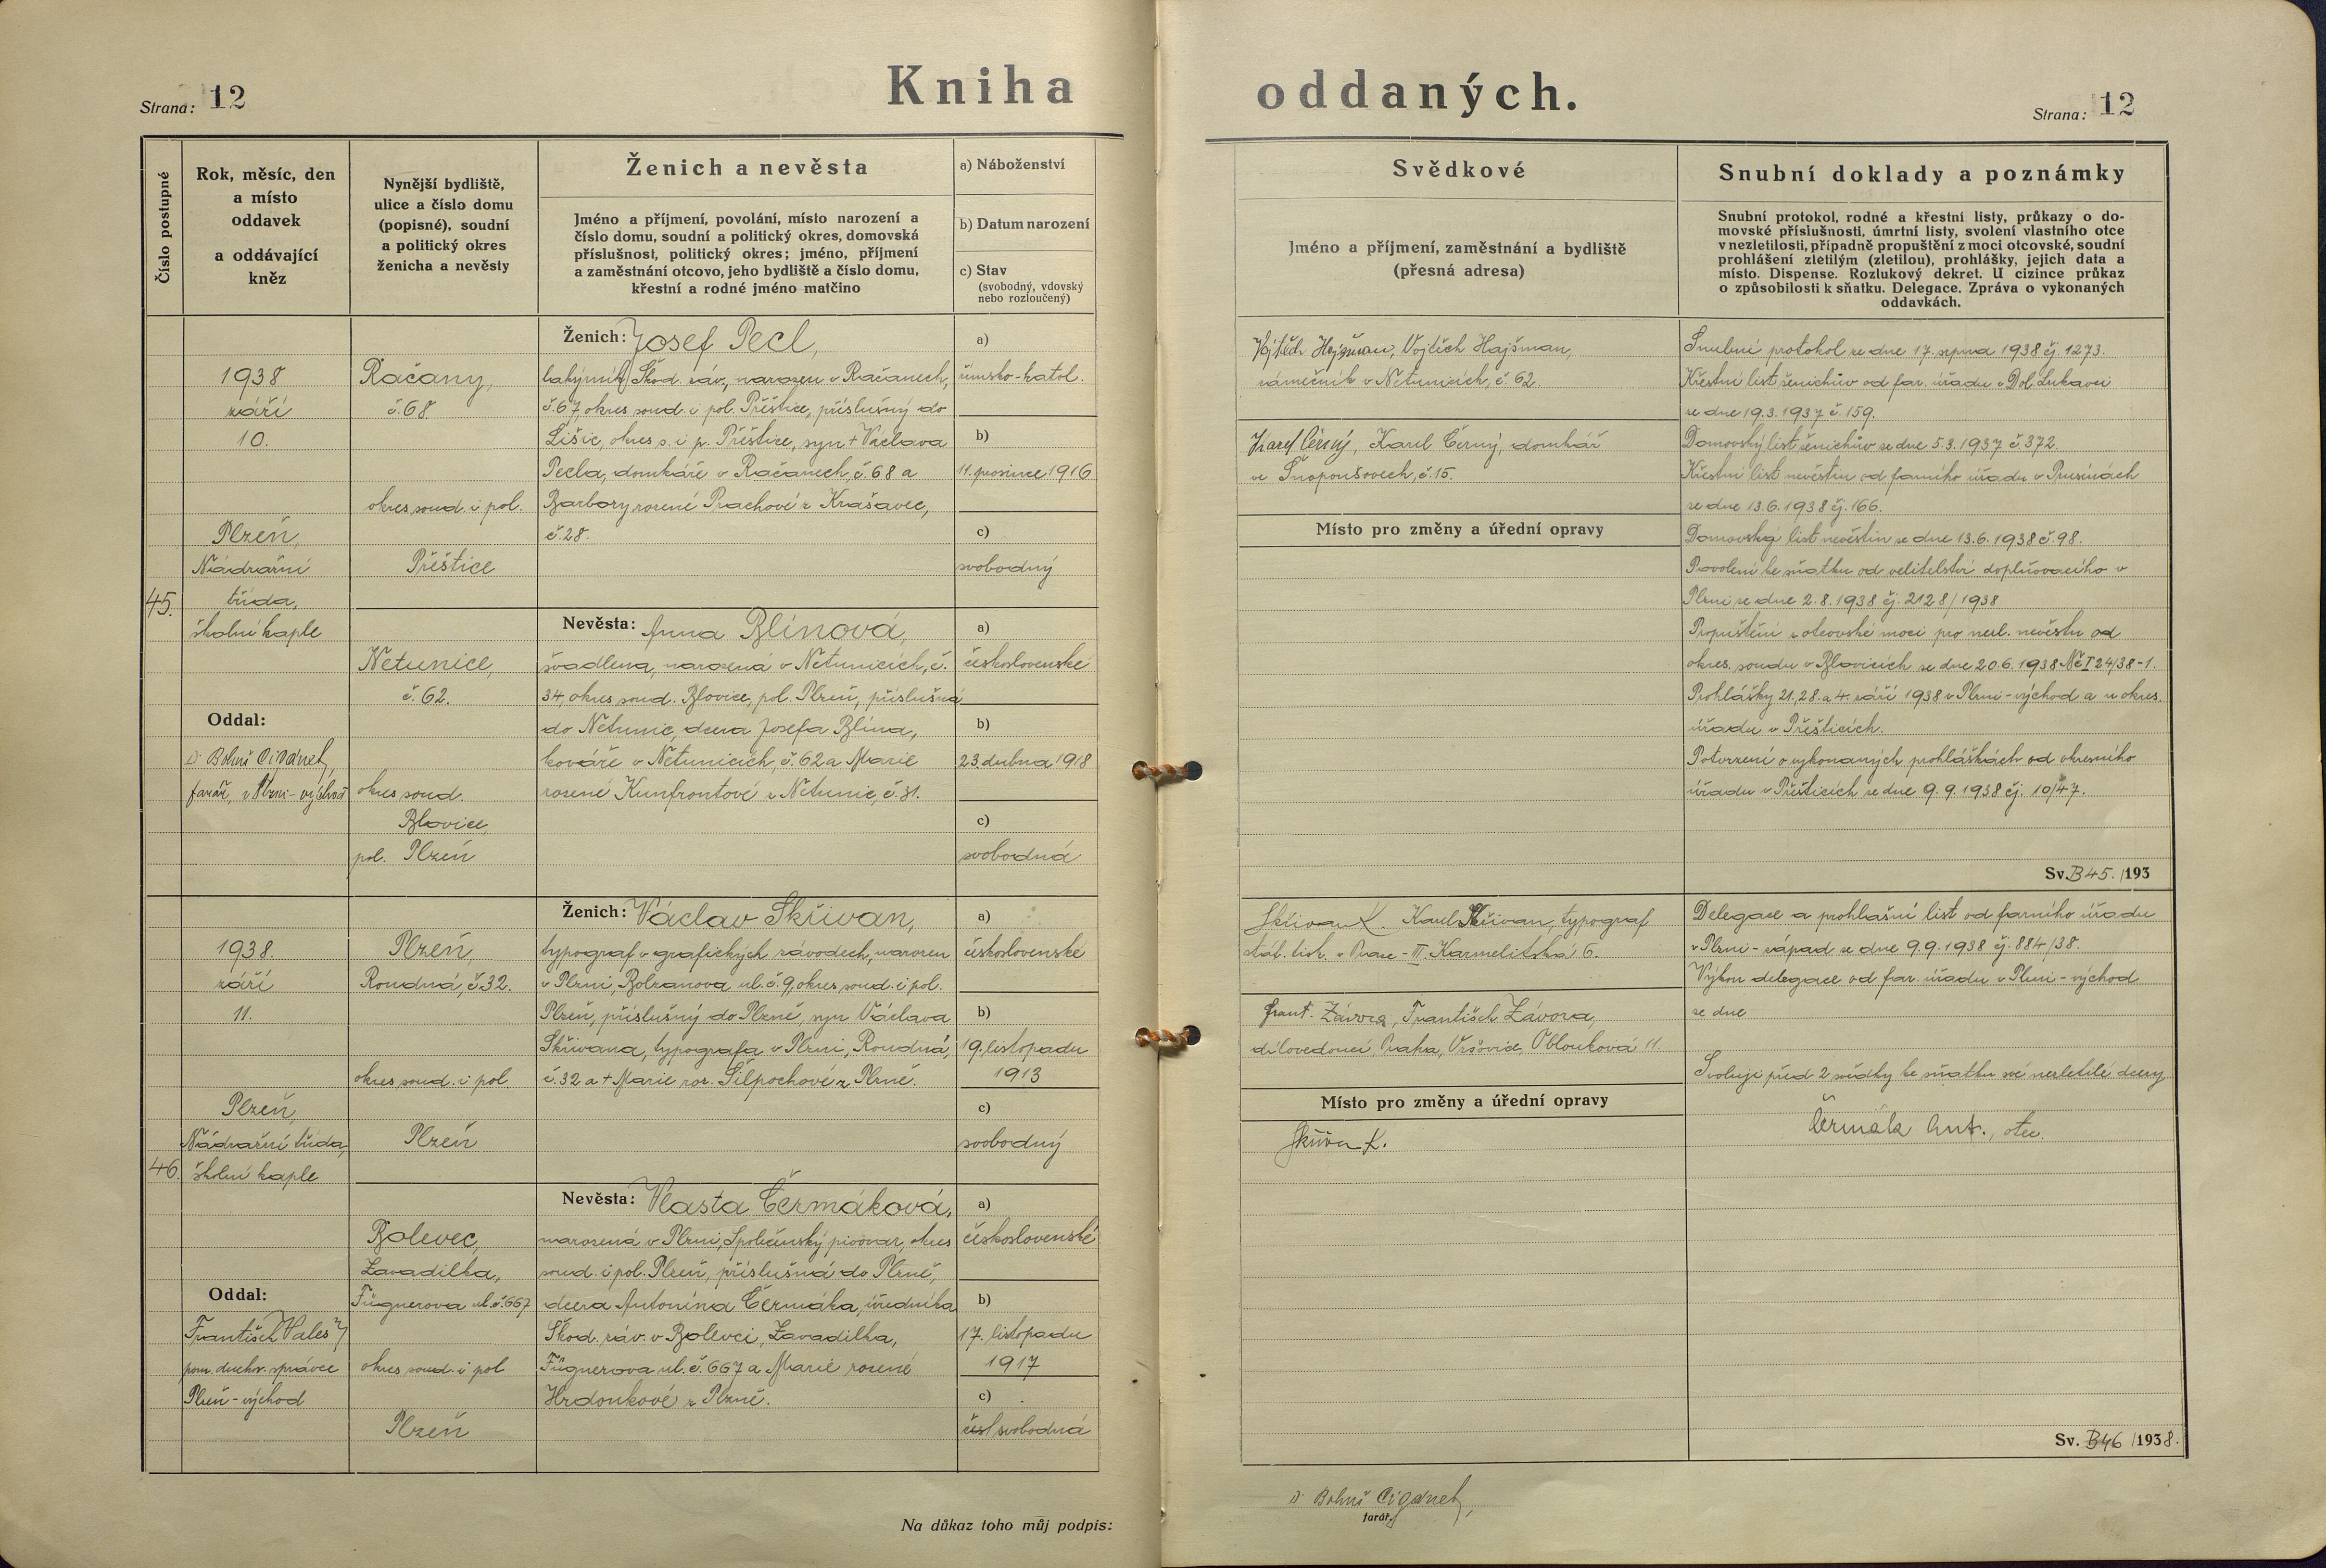 Strana: 12
Kniha
oddaných.
Strana: 12
Číslo postupné
Rok, měsíc, den
a místo
oddavek
a oddávající
kněz
Nynější bydliště,
ulice a číslo domu
(popisné), soudní
a politický okres
ženicha a nevěsty
Ženich a nevěsta
Jméno a příjmení, povolání, místo narození a
číslo domu, soudní a politický okres, domovská
příslušnost, politický okres; jméno, příjmení
a zaměstnání otcovo, jeho bydliště a číslo domu,
křestní a rodné jméno matčino
a) Náboženství
b) Datum narození
c) Stav
(svobodný, vdovský
nebo rozloučený)
Svědkové
Jméno a příjmení, zaměstnání a bydliště
(přesná adresa)
Snubní doklady a poznámky
Snubní protokol, rodné a křestní listy, průkazy o do-
movské příslušnosti, úmrtní listy, svolení vlastního otce
v nezletilosti, případně propuštění z moci otcovské, soudní
prohlášení zletilým (zletilou), prohlášky, jejich data a
místo. Dispense. Rozlukový dekret. U cizince průkaz
o způsobilosti k sňatku. Delegace. Zpráva o vykonaných
oddavkách.
45.
1938
září
10.
Plzeň,
Nádražní
třída,
školní kaple
Oddal:
Dr Bohuš Cigánek,
farář, v Plzni-východ
Račany,
č. 68
okres soud. i pol.
Přeštice
Netunice,
č. 62.
okres soud.
Blovice,
pol. Plzeň
Ženich: Josef Pecl,
lakýrník Škod. záv., narozen v Račanech,
č. 67, okres soud. i pol. Přeštice, příslušný do
Lišic, okres s. i p. Přeštice, syn + Václava
Pecla, domkáře v Račanech, č. 68 a
Barbory rozené Prachové z Krašavec,
č. 28.
Nevěsta: Anna Blínová,
švadlena, narozená v Netunicích, č.
34, okres soud. Blovice, pol. Plzeň, příslušná
do Netunic, dcera Josefa Blína,
kováře v Netunicích, č. 62 a Marie
rozené Kunfrontové z Netunic, č. 31.
a)
římsko-katol.
b)
11. prosince 1916
c)
svobodný
a)
československé
b)
23. dubna 1918
c)
svobodná
Vojtěch Hajšman, Vojtěch Hajšman,
zámečník v Netunicích, č. 62.
Karel Černý, Karel Černý, domkář
ve Snopoušovech, č. 15.
Místo pro změny a úřední opravy
Snubní protokol ze dne 17. srpna 1938 čj. 1273.
Křestní list ženichův od far. úřadu v Dol. Lukavici
ze dne 19.3.1937 č. 159.
Domovský list ženichův ze dne 5.3.1937 č 372.
Křestní list nevěstin od farního úřadu v Prusinách
ze dne 13.6.1938 čj. 166.
Domovský list nevěstin ze dne 13.6.1938 č. 98.
Povolení ke sňatku od velitelství doplňovacího v
Plzni ze dne 2.8.1938 čj. 2128/1938
Propuštění z otcovské moci pro nezl. nevěstu od
okres. soudu v Blovicích ze dne 20.6.1938 Nč I 24/38-1.
Prohlášky 21., 28. a 4. září 1938 v Plzni-východ a u okres.
úřadu v Přešticích.
Potvrzení o vykonaných prohláškách od okresního
úřadu v Přešticích ze dne 9.9.1938 čj. 10/47.
Sv. B45. /193
46.
1938.
září
11.
Plzeň,
Nádražní třída,
školní kaple
Oddal:
František Paleš
pom. duchov. správce
Plzeň-východ
Plzeň,
Roudná, č 32.
okres soud. i pol.
Plzeň
Bolevec,
Zavadilka,
Fügnerova ul. č. 667
okres soud. i pol
Plzeň
Ženich: Václav Skřivan,
typograf v grafických závodech, narozen
v Plzni, Bolzanova ul. č. 9, okres soud. i pol.
Plzeň, příslušný do Plzně, syn Václava
Skřivana, typografa v Plzni, Roudná,
č. 32 a + Marie roz. Šilpochové z Plzně.
Nevěsta: Vlasta Čermáková,
narozená v Plzni, Společenský pivovar, okres
soud. i pol. Plzeň, příslušná do Plzně,
dcera Antonína Čermáka, úředníka
Škod. záv. v Bolevci, Zavadilka,
Fügnerova ul. č. 667 a Marie rozené
Hrdonkové z Plzně.
a)
československé
b)
19. listopadu
1913
c)
svobodný
a)
československé
b)
17. listopadu
1917
c)
čest svobodná
Skřivan K. Karel Skřivan, typograf
stát. tisk. v Praze - III. Karmelitská 6.
Frant. Závora, František Závora,
dílovedoucí, Praha, Vršovice, Oblouková 11.
Místo pro změny a úřední opravy
Skřivan K.
Delegace a prohlašní list od farního úřadu
v Plzni-západ ze dne 9.9.1938 čj. 884/38.
Výkon delegace od far. úřadu v Plzni-východ
ze dne
Svoluji před 2 svědky ke sňatku své nezletilé dcery
Čermák Ant., otec.
Sv. B46 /1938.
Na důkaz toho můj podpis:
Dr Bohuš Cigánek,
farář.